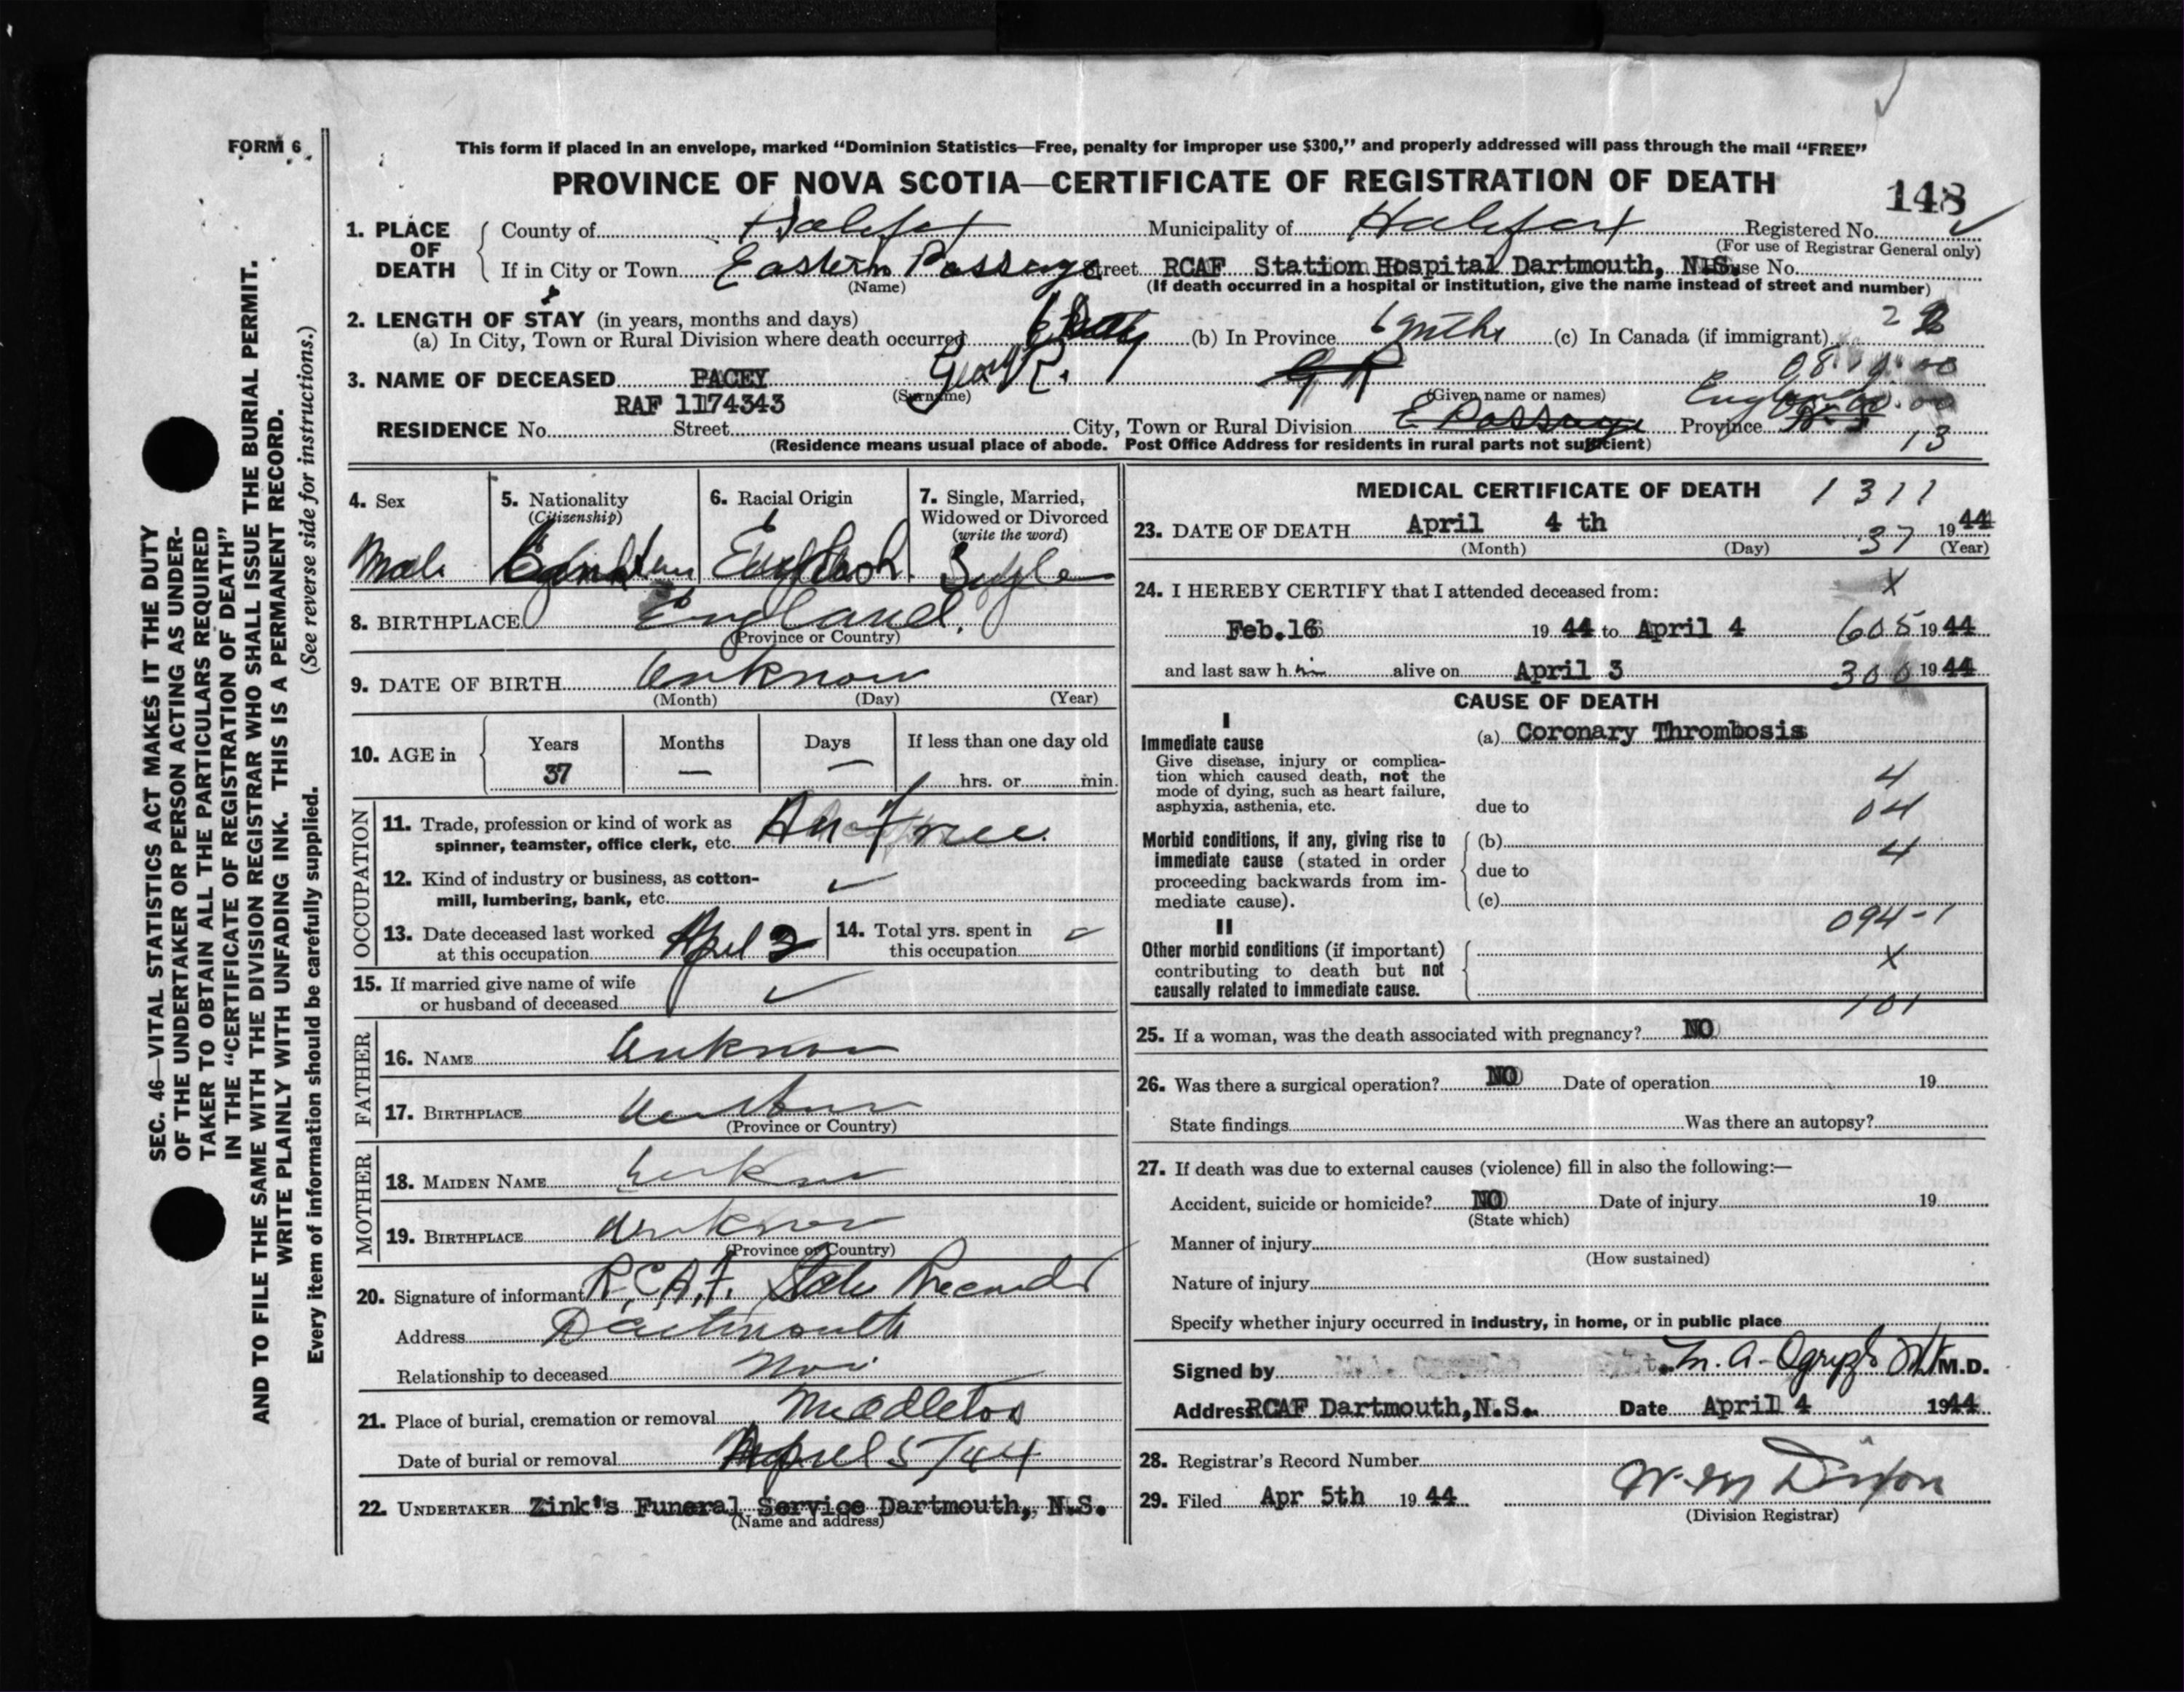 FORM 6
This form if placed in an envelope, marked “Dominion Statistics—Free, penalty for improper use $300,” and properly addressed will pass through the mail “FREE”
PROVINCE OF NOVA SCOTIA—CERTIFICATE OF REGISTRATION OF DEATH
148
1. PLACE OF DEATH
County of Halifax Municipality of Halifax Registered No.
(For use of Registrar General only)
If in City or Town Eastern Passage Street RCAF Station Hospital Dartmouth, N.S. House No.
(Name) (If death occurred in a hospital or institution, give the name instead of street and number)
2. LENGTH OF STAY (in years, months and days)
(a) In City, Town or Rural Division where death occurred (b) In Province 6 mths (c) In Canada (if immigrant)
3. NAME OF DECEASED PACEY Geo. R. G R
08.10.00
(Surname) (Given name or names)
RAF 1174343
England
RESIDENCE No. Street City, Town or Rural Division E Passage Province
13
(Residence means usual place of abode. Post Office Address for residents in rural parts not sufficient)
4. Sex
Male
5. Nationality
(Citizenship)
6. Racial Origin
English
7. Single, Married, Widowed or Divorced
(write the word)
Single
8. BIRTHPLACE England.
(Province or Country)
9. DATE OF BIRTH Unknown
(Month) (Day) (Year)
10. AGE in
Years Months Days If less than one day old
37 — — hrs. or min.
OCCUPATION
11. Trade, profession or kind of work as
spinner, teamster, office clerk, etc.
12. Kind of industry or business, as cotton-
mill, lumbering, bank, etc.
13. Date deceased last worked
at this occupation April 3
14. Total yrs. spent in
this occupation
15. If married give name of wife
or husband of deceased
FATHER
16. NAME Unknown
17. BIRTHPLACE Unknown
(Province or Country)
MOTHER
18. MAIDEN NAME Unknown
19. BIRTHPLACE Unknown
(Province or Country)
20. Signature of informant R.C.A.F. Records
Address Dartmouth
Relationship to deceased
21. Place of burial, cremation or removal Middleton
Date of burial or removal April 5/44
22. UNDERTAKER Zink's Funeral Service Dartmouth, N.S.
(Name and address)
MEDICAL CERTIFICATE OF DEATH 1311
23. DATE OF DEATH April 4 th 37 1944
(Month) (Day) (Year)
24. I HEREBY CERTIFY that I attended deceased from:
X
Feb.16 1944 to April 4 605 1944
and last saw him alive on April 3 300 1944
CAUSE OF DEATH
I
Immediate cause
Give disease, injury or complica-
tion which caused death, not the
mode of dying, such as heart failure,
asphyxia, asthenia, etc.
(a) Coronary Thrombosis
4
due to
04
Morbid conditions, if any, giving rise to
immediate cause (stated in order
proceeding backwards from im-
mediate cause).
(b)
4
due to
(c)
094-1
II
Other morbid conditions (if important)
contributing to death but not
causally related to immediate cause.
X
101
25. If a woman, was the death associated with pregnancy? NO
26. Was there a surgical operation? NO Date of operation 19
State findings Was there an autopsy?
27. If death was due to external causes (violence) fill in also the following:—
Accident, suicide or homicide? NO Date of injury 19
(State which)
Manner of injury
(How sustained)
Nature of injury
Specify whether injury occurred in industry, in home, or in public place
Signed by M.D.
Address RCAF Dartmouth,N.S. Date April 4 1944
28. Registrar's Record Number
29. Filed Apr 5th 1944 W. M Dixon
(Division Registrar)
SEC. 46—VITAL STATISTICS ACT MAKES IT THE DUTY
OF THE UNDERTAKER OR PERSON ACTING AS UNDER-
TAKER TO OBTAIN ALL THE PARTICULARS REQUIRED
IN THE “CERTIFICATE OF REGISTRATION OF DEATH”
AND TO FILE THE SAME WITH THE DIVISION REGISTRAR WHO SHALL ISSUE THE BURIAL PERMIT.
WRITE PLAINLY WITH UNFADING INK. THIS IS A PERMANENT RECORD.
Every item of information should be carefully supplied. (See reverse side for instructions.)